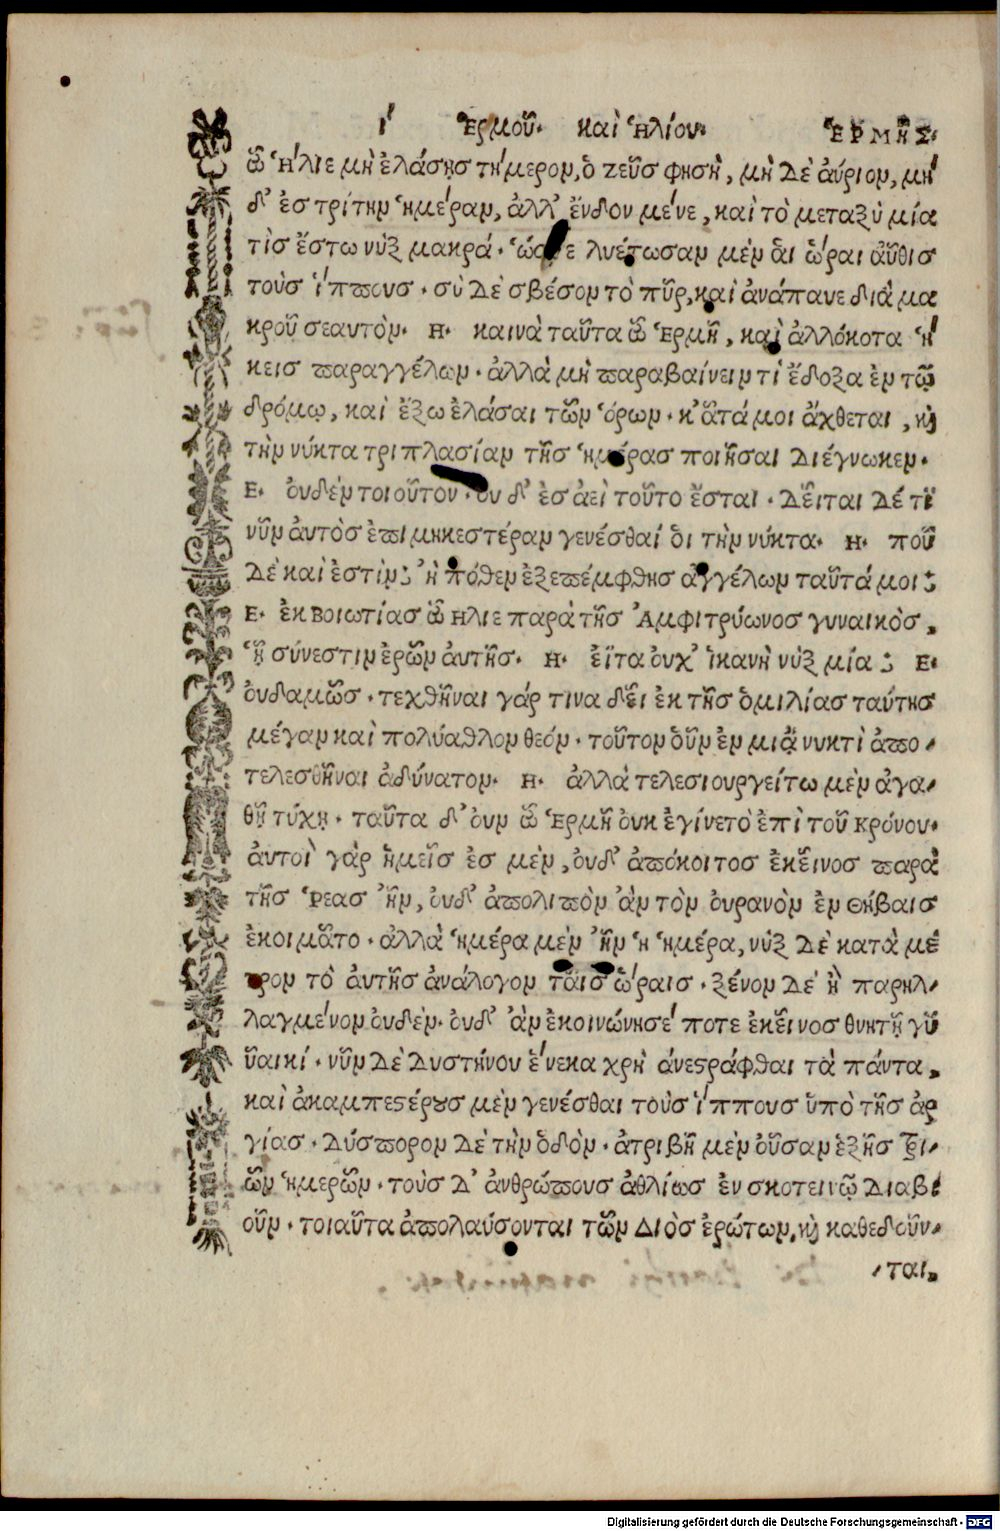 Ι΄ Ἑρμοῦ· καὶ Ἡλίου· ἙΡΜΗΣ·
ὦ Ἥλιε μὴ ἐλάσῃς τήμερον, ὁ Ζεῦς φησὴ, μὴ δὲ ἀύριον, μή
δ' ἐς τρίτην ἡμέραν, ἀλλ' ἔνδον μένε, καὶ τὸ μεταξὺ μία
τὶς ἔστω νὺξ μακρά· ὥστε λυέτωσαν μὲν ἁι ὧραι αὖθις
τοὺς ἵππους· σὺ δὲ σβέσον τὸ πῦρ, καὶ ἀνάπαυε διὰ μα
κροῦ σεαυτὸν· Η· καινὰ ταῦτα ὦ Ἑρμῆ, καὶ ἀλλόκοτα ἥ
κεις παραγγέλων· ἀλλὰ μὴ παραβαίνειν τὶ ἔδοξα ἐν τῷ
δρόμῳ, καὶ ἔξω ἐλάσαι τῶν ὅρων· κᾆτά μοι ἄχθεται, κὴ
τὴν νύκτα τριπλασίαν τῆς ἡμέρας ποιῆσαι διέγνωκεν·
Ε· ὀυδέν τοιοῦτον· ὀυ δ' ἐς ἀεὶ τοῦτο ἔσται· δεῖται δέ τι
νῦν ἀυτὸς ἐπιμηκεστέραν γενέσθαί ὁι τὴν νύκτα· Η· ποῦ
δὲ καὶ ἐστὶν; ἢ πόθεν ἐξεπέμφθης ἀγγέλων ταῦτά μοι;
Ε· ἐκ Βοιωτίας ὦ Ηλιε παρὰ τῆς Ἀμφιτρύωνος γυναικὸς,
ᾗ σύνεστιν ἐρῶν ἀυτῆς· Η· ἔιτα ὀυχ' ἱκανὴ νὺξ μία; Ε·
ὀυδαμῶς· τεχθῆναι γάρ τινα δεῖ ἐκ τῆς ὁμιλίας ταύτης
μέγαν καὶ πολύαθλον θεόν· τοῦτον ὁῦν ἐν μιᾷ νυκτὶ ἀπο-
τελεσθῆναι ἀδύνατον· Η· ἀλλὰ τελεσιουργείτω μὲν ἀγα-
θῇ τύχῃ· ταῦτα δ' ὀυν ὦ Ἑρμῆ ὀυκ ἐγίνετο ἐπὶ τοῦ Κρόνου·
ἀυτοὶ γὰρ ἡμεῖς ἐς μὲν, ὀυδ' ἀπόκοιτος ἐκεῖνος παρὰ
τῆς Ῥεας ἦν, ὀυδ' ἀπολιπὸν ἂν τὸν ὀυρανὸν ἐν Θήβαις
ἐκοιμᾶτο· ἀλλὰ ἡμέρα μὲν ἦν ἡ ἡμέρα, νὺξ δὲ κατὰ μέ
τρον τὸ ἀυτῆς ἀνάλογον ταῖς ὥραις· ξένον δὲ ἢ παρηλ-
λαγμένον ὀυδὲν· ὀυδ' ἂν ἐκοινώνησέ ποτε ἐκεῖνος θνητῇ γῦ
ῦαικί· νῦν δὲ δυστήνου ἕνεκα χρὴ ἀνεςράφθαι τὰ πάντα,
καὶ ἀκαμπεςέρȣς μὲν γενέσθαι τοὺς ἵππους ὑπὸ τῆς ἀρ
γίας· δύσπορον δὲ τὴν ὁδὸν· ἀτριβῆ μὲν ὀῦσαν ἑξῆς τρι-
ῶν ἡμερῶν· τοὺς δ' ἀνθρώπους ἀθλίως ἐν σκοτεινῷ διαβι
οῦν· τοιαῦτα ἀπολαύσονται τῶν Διὸς ἐρώτων, κὴ καθεδοῦν-
-ται.
Digitalisierung gefördert durch die Deutsche Forschungsgemeinschaft - DFG